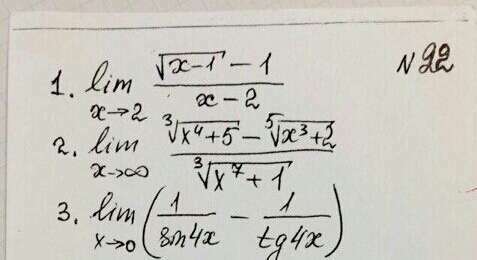 N 22
1. lim x→2 (√(x-1) - 1)/(x - 2)
2. lim x→∞ (∛(x⁴+5) - ⁵√(x³+2))/(∛(x⁷+1))
3. lim x→0 (1/(sin4x) - 1/(tg4x))